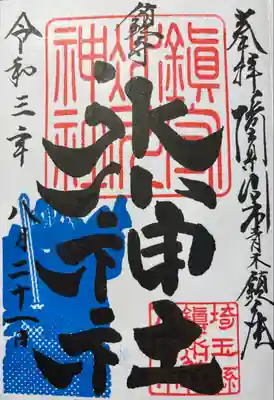 奉拝 埼玉県川口市青木鎮座
鎮守
氷川神社
令和三年 八月二十一日
鎭守
氷川
神社
埼玉縣